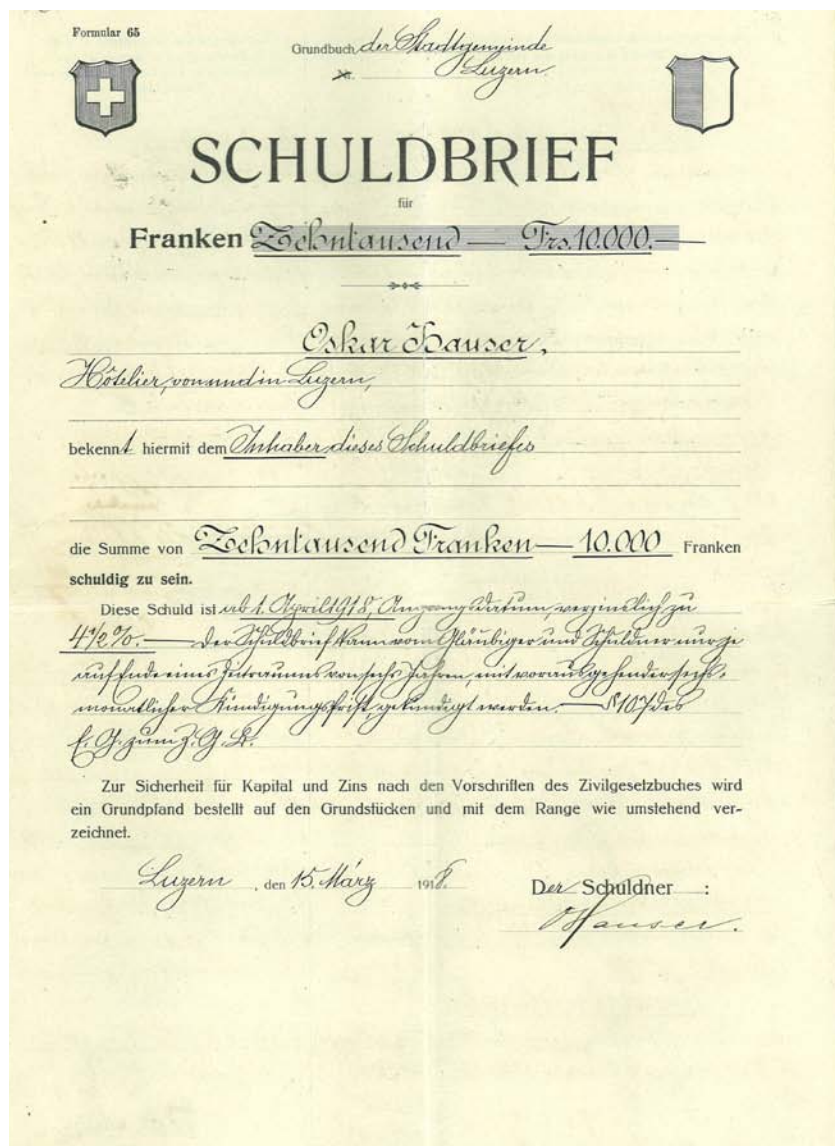 Formular 65
Grundbuch der Stadtgemeinde
Nr. Luzern.
SCHULDBRIEF
für
Franken Zehntausend — Frs. 10.000.—
Oskar Hauser,
Hôtelier, von und in Luzern,
bekennt hiermit dem Inhaber dieses Schuldbriefes
die Summe von Zehntausend Franken — 10.000 Franken
schuldig zu sein.
Diese Schuld ist ab 1. April 1918, Angangsdatum, verzinslich zu
4 1/2 %. — Der Schuldbrief kann vom Gläubiger und Schuldner nur je
auf Ende eines Zeitraums von sechs Jahren, mit vorausgehender sechs-
monatlicher Kündigungsfrist, gekündigt werden. — § 107 des
E. G. zum Z. G. B.
Zur Sicherheit für Kapital und Zins nach den Vorschriften des Zivilgesetzbuches wird
ein Grundpfand bestellt auf den Grundstücken und mit dem Range wie umstehend ver-
zeichnet.
Luzern, den 15. März 1918.
Der Schuldner :
O Hauser.